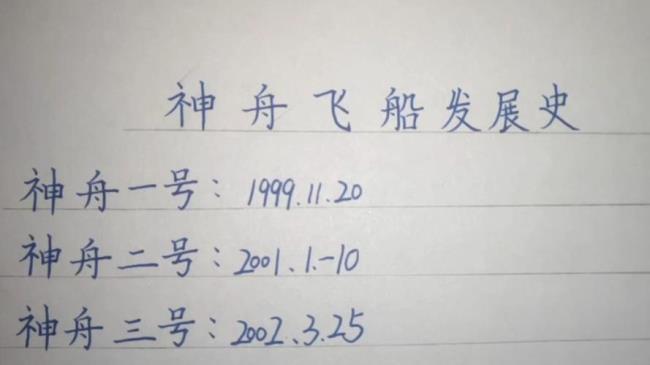 神舟飞船发展史
神舟一号：1999.11.20
神舟二号：2001.1.-10
神舟三号：2002.3.25